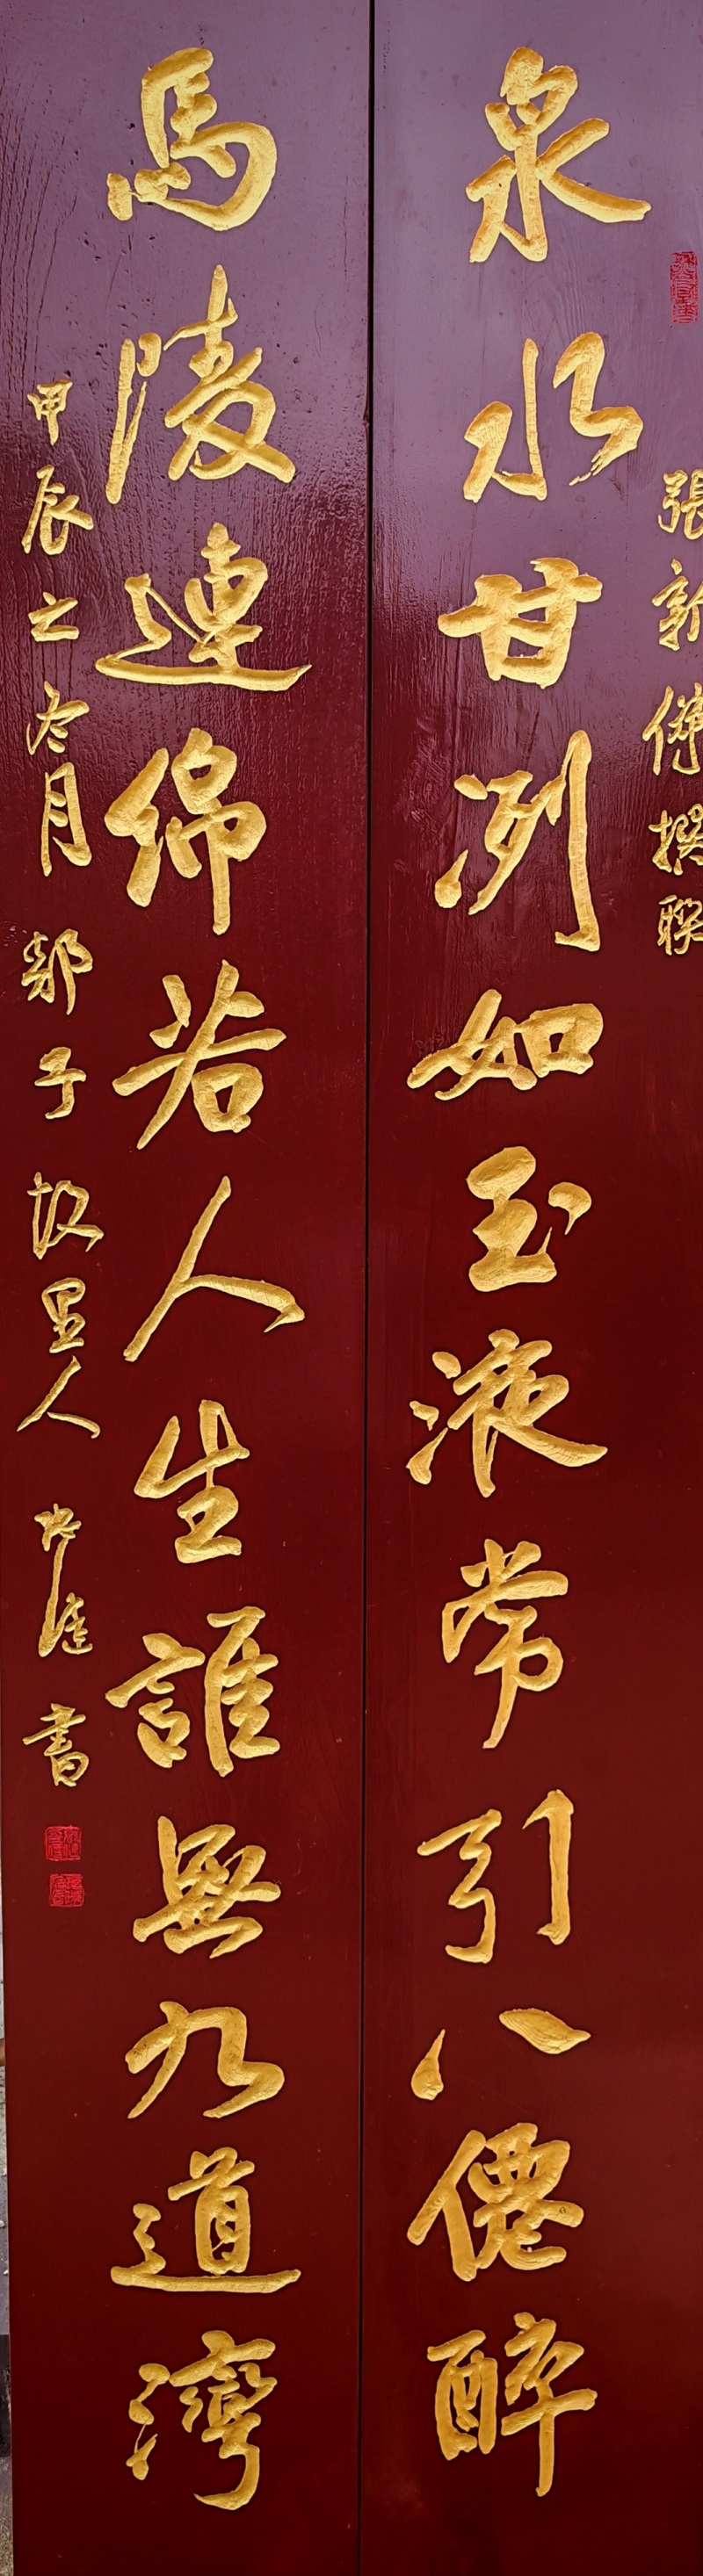 張新傑撰聯
泉水甘冽如玉液常引八僊醉
馬陵連綿若人生誰無九道灣
甲辰之冬月 郯子故里人 書